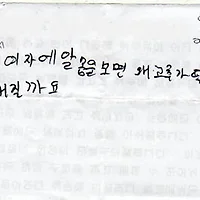 여자에 알몸을 보면 왜 고추가
까요